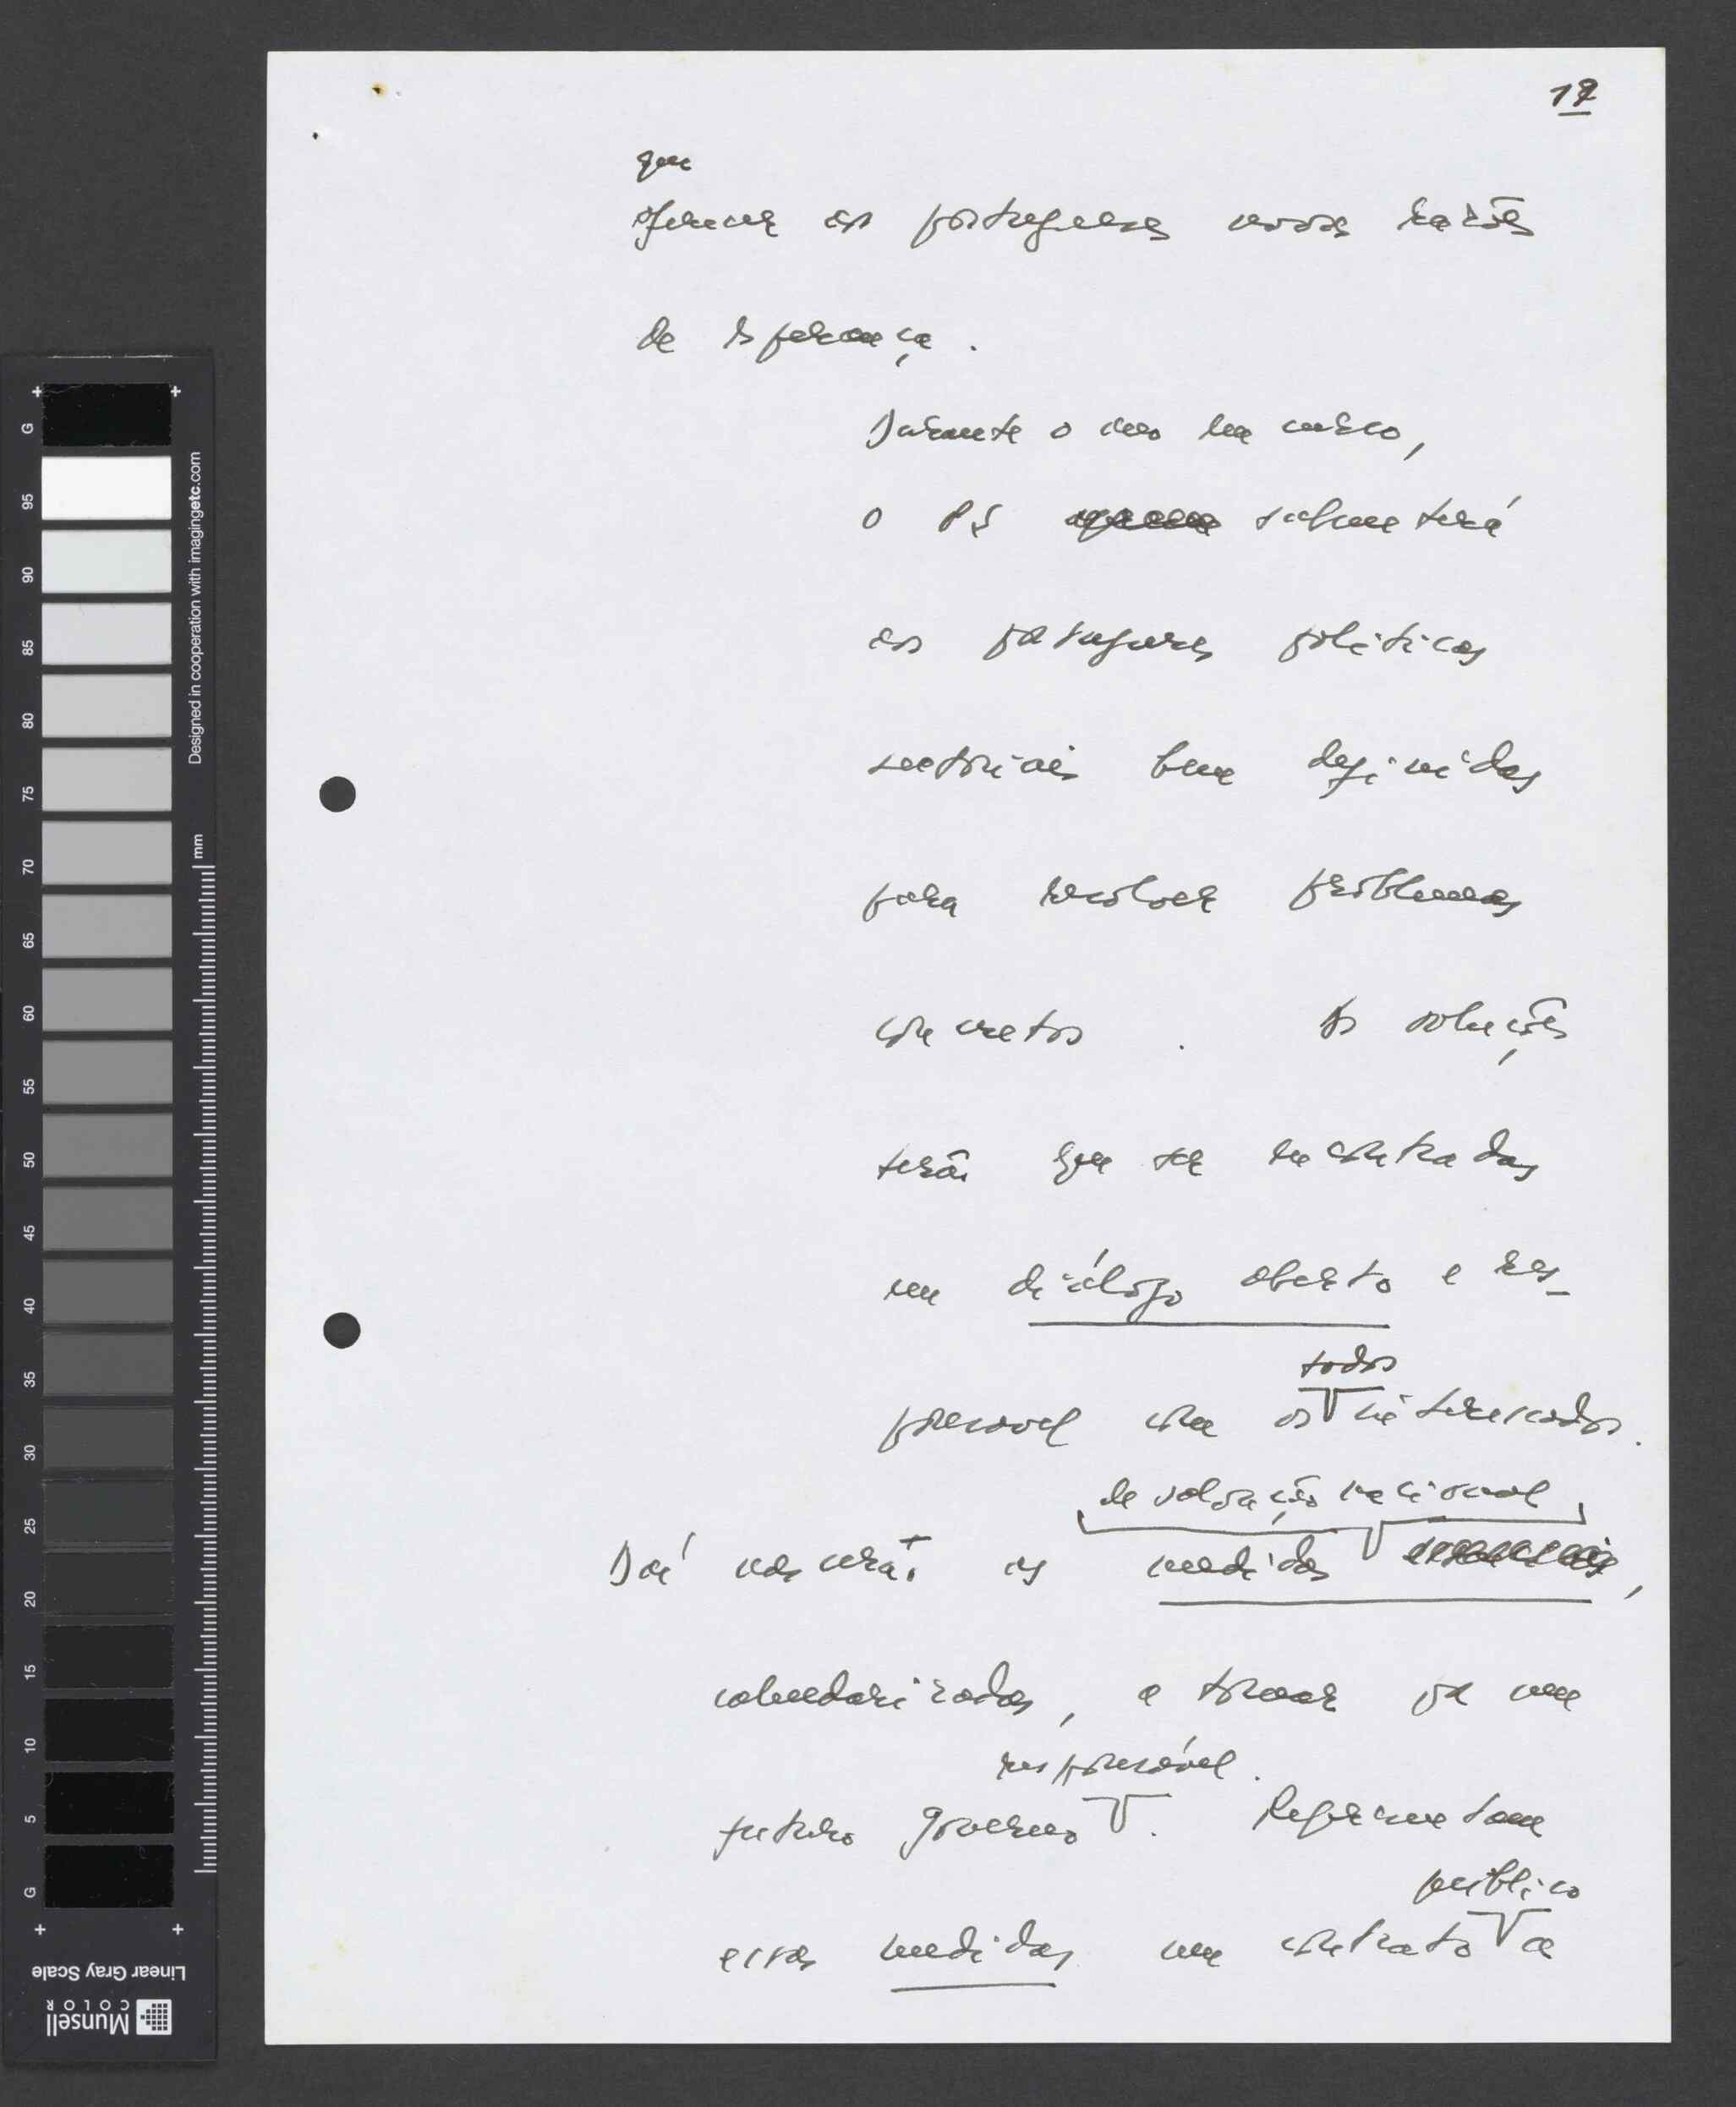 17
que
oferecer aos portugueses novas razões
de esperança.
Durante o ano em curso,
o PS submeterá
aos portugueses políticas
sectoriais bem definidas
para resolver problemas
concretos. As soluções
terão que ser encontradas
num diálogo aberto e res-
todos
ponsavel com os interessados.
de salvação nacional
Daí nascerão as medidas,
calendarizadas, a tomar por um
responsável.
futuro governo. Representam
público
essas medidas um contrato a
Designed in cooperation with imagingetc.com
mm
G
95
90
85
80
75
70
65
60
55
50
45
40
35
30
25
20
15
10
5
G
Linear Gray Scale
Munsell
COLOR